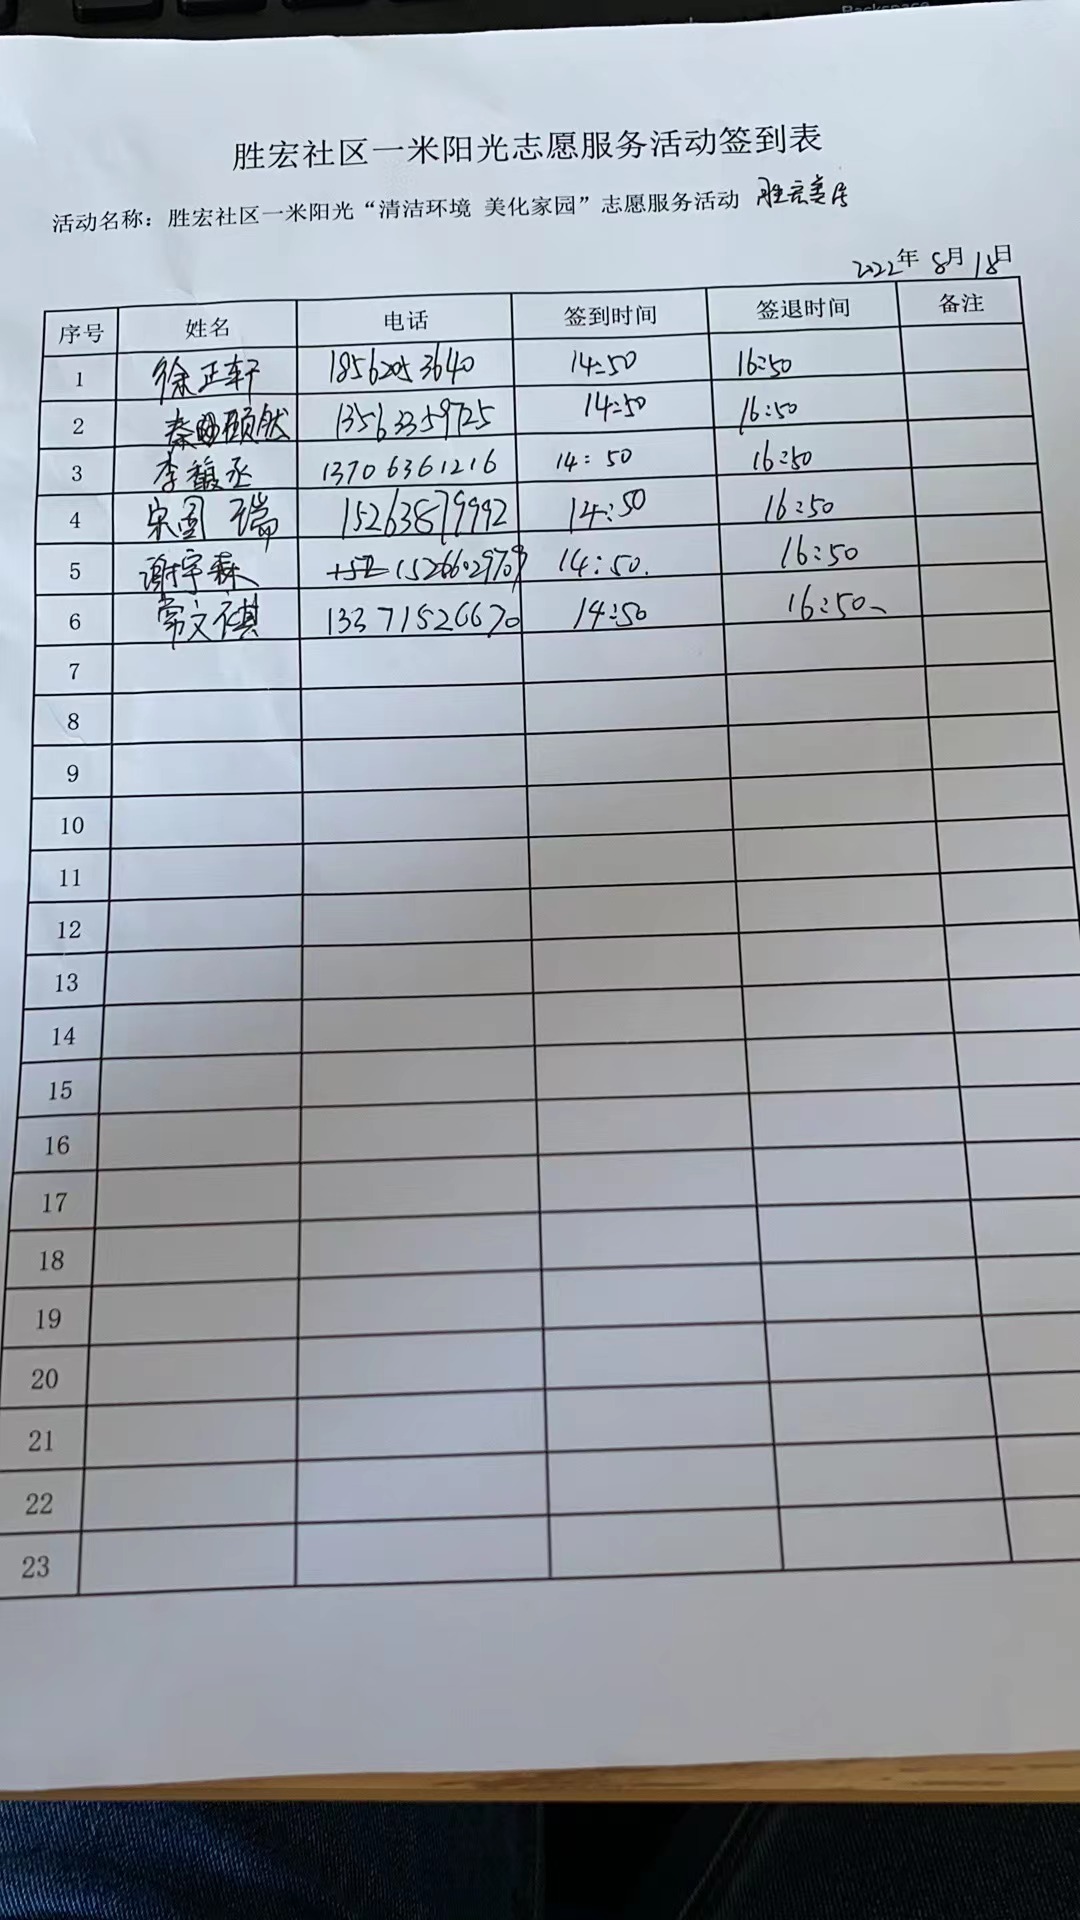 Backspace
胜宏社区一米阳光志愿服务活动签到表
活动名称：胜宏社区一米阳光“清洁环境 美化家园”志愿服务活动 胜宏美居
2022年 8月 18日
序号 姓名 电话 签到时间 签退时间 备注
1 徐正轩 18562053640 14:50 16:50
2 秦颐然 13563359725 14:50 16:50
3 李馥丞 13706361216 14:50 16:50
4 宋国瑞 15263879992 14:50 16:50
5 谢宇森 14:50. 16:50
6 常文祺 13371526670 14:50 16:50
7
8
9
10
11
12
13
14
15
16
17
18
19
20
21
22
23